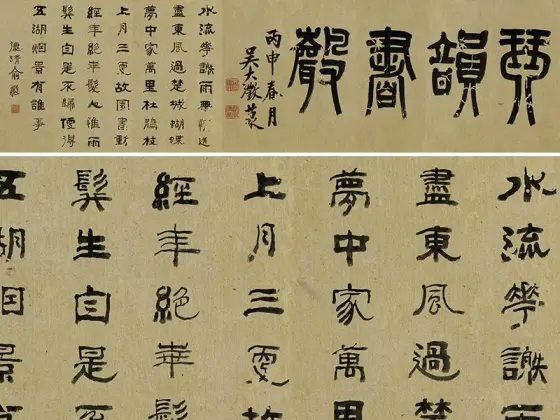 琴韻書聲
丙申春月
吳大澂篆
水流華謝兩無情送
盡東風過楚城蝴蝶
夢中家萬里杜鵑枝
上月三更故園書動
經年絕華髮心催兩
鬢生自是不歸便得
五湖烟景有誰爭
德清俞樾
水流華謝兩
盡東風過楚
夢中家萬里
上月三更故
經年絕華髮
鬢生自是不
五湖烟景有